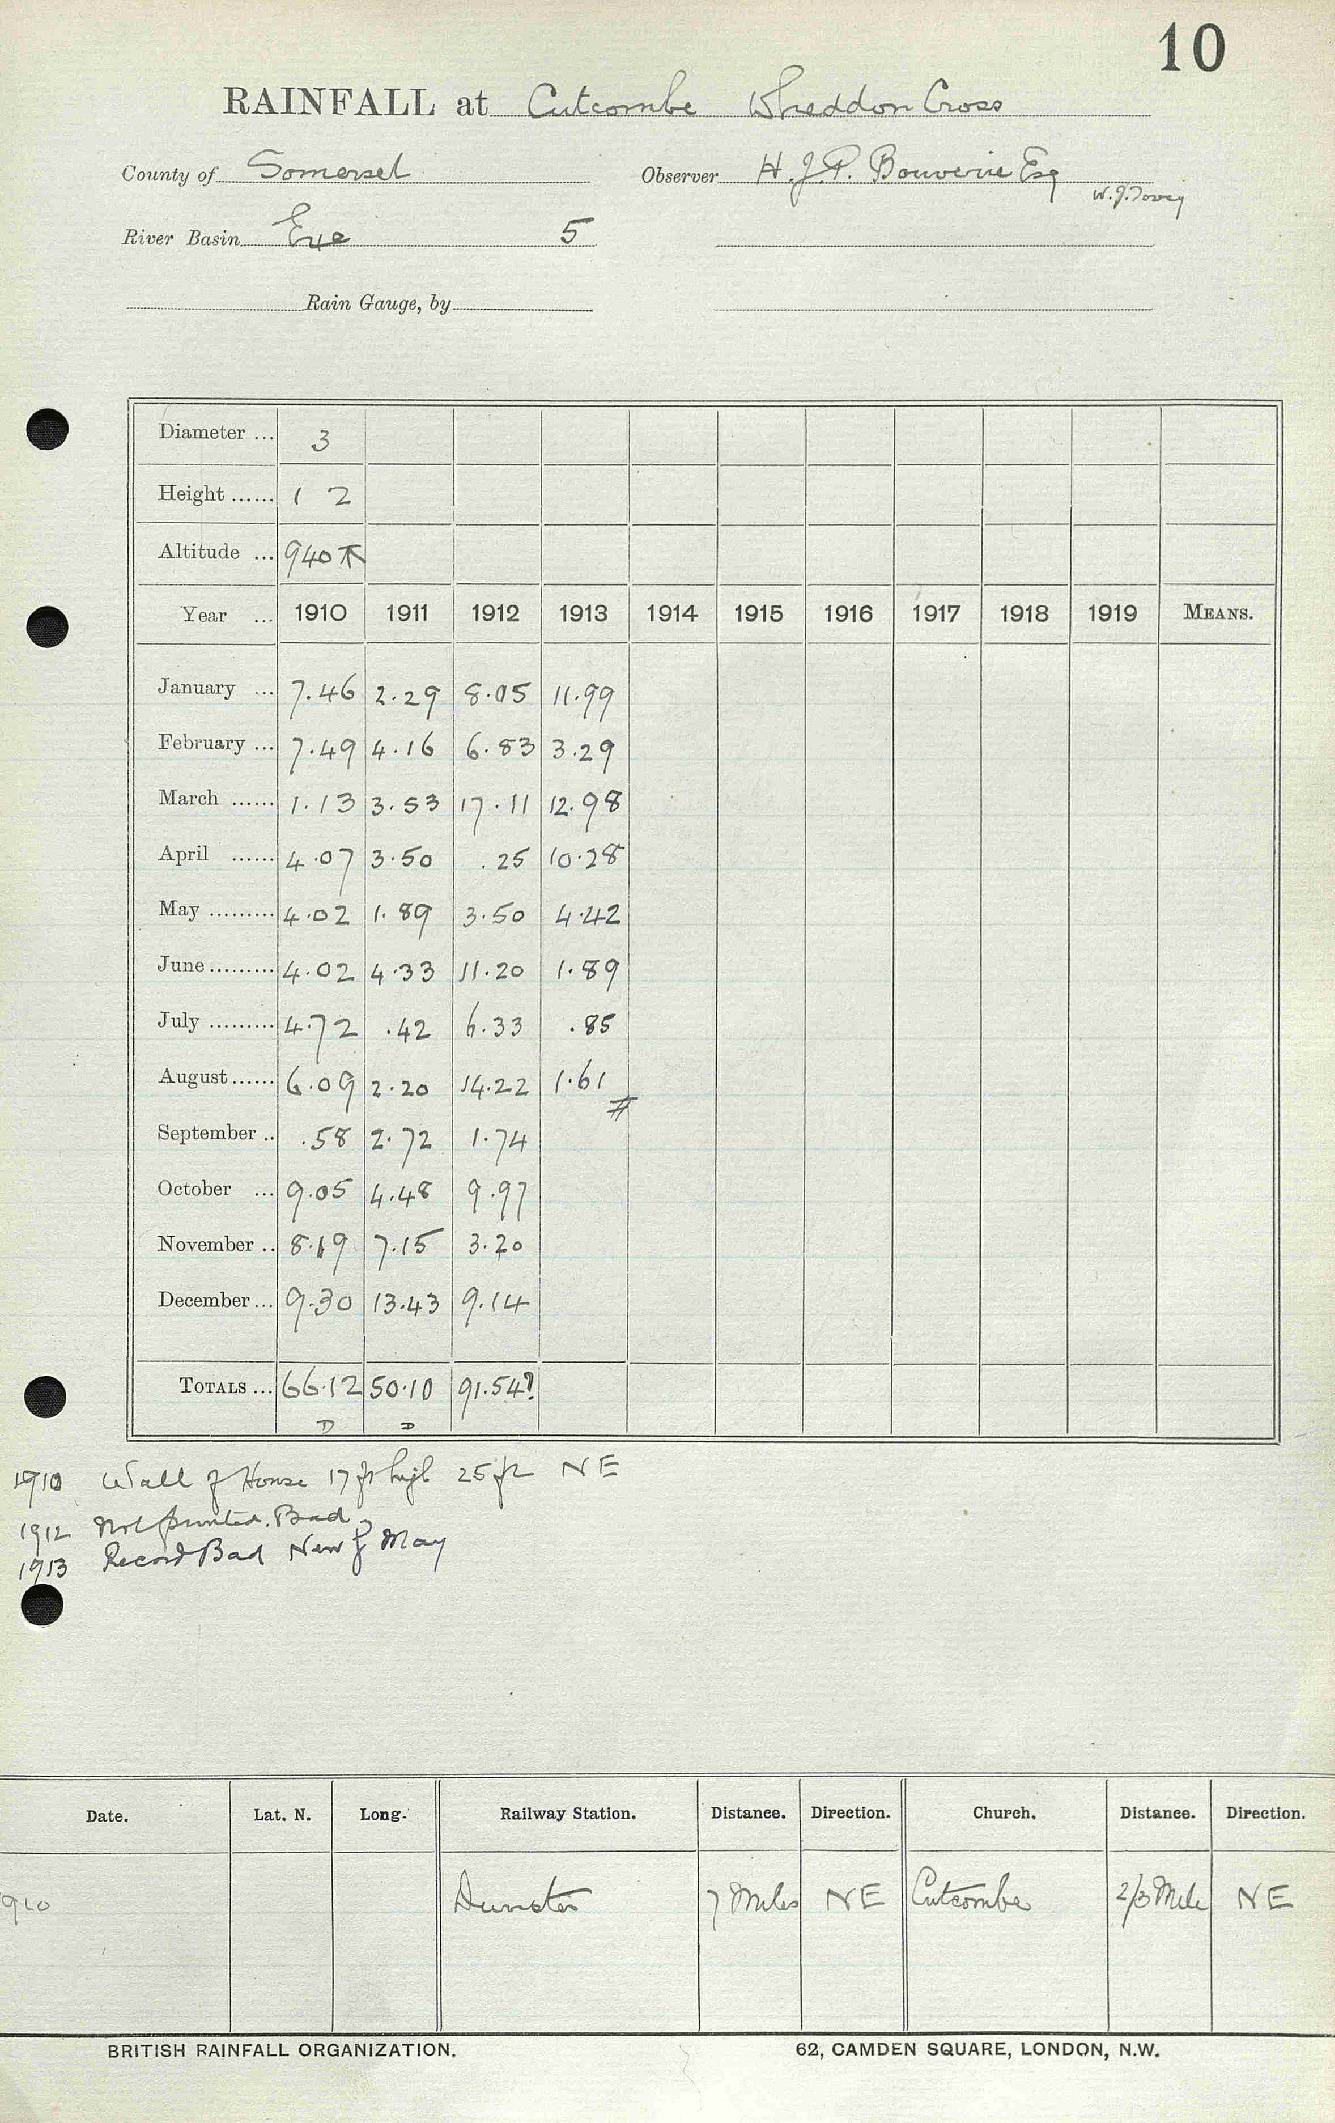 10
RAINFALL at Cutcombe Wheddon Cross
County of Somerset Observer H. J. P. Bouverie Esq
W. J. Tovey
River Basin Exe 5
Rain Gauge, by
Diameter ... 3
Height ...... 1 2
Altitude ... 940
Year ... 1910 1911 1912 1913 1914 1915 1916 1917 1918 1919 MEANS.
January ... 7.46 2.29 8.05 11.99
February ... 7.49 4.16 6.83 3.29
March ...... 1.13 3.53 17.11 12.98
April ...... 4.07 3.50 .25 10.28
May ......... 4.02 1.89 3.50 4.42
June ......... 4.02 4.33 11.20 1.89
July ......... 4.72 .42 6.33 .85
August ...... 6.09 2.20 14.22 1.61
#
September .. .58 2.72 1.74
October ... 9.05 4.48 9.97
November .. 8.19 7.15 3.20
December ... 9.30 13.43 9.14
TOTALS ... 66.12 50.10 91.54?
D D
1910 Wall of House 17 ft high 25 ft NE
1912 Not printed. Bad
1913 Record Bad New May
Date. Lat. N. Long. Railway Station. Distance. Direction. Church. Distance. Direction.
910 Dunster 7 Miles NE Cutcombe 2/3 Mile NE
BRITISH RAINFALL ORGANIZATION. 62, CAMDEN SQUARE, LONDON, N.W.